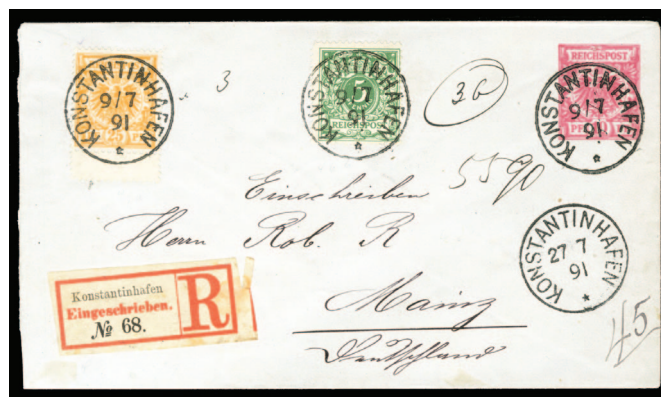 KONSTANTINHAFEN
9/7
91
*
25 PF
3
KONSTANTINHAFEN
9/7
91
*
5
REICHSPOST
36
REICHSPOST
KONSTANTINHAFEN
9/7
91
*
Einschreiben 5590
Herrn Rob. R
KONSTANTINHAFEN
27 7
91
*
Konstantinhafen
Eingeschrieben.
№ 68.
R
Mainz
Deutschland
45